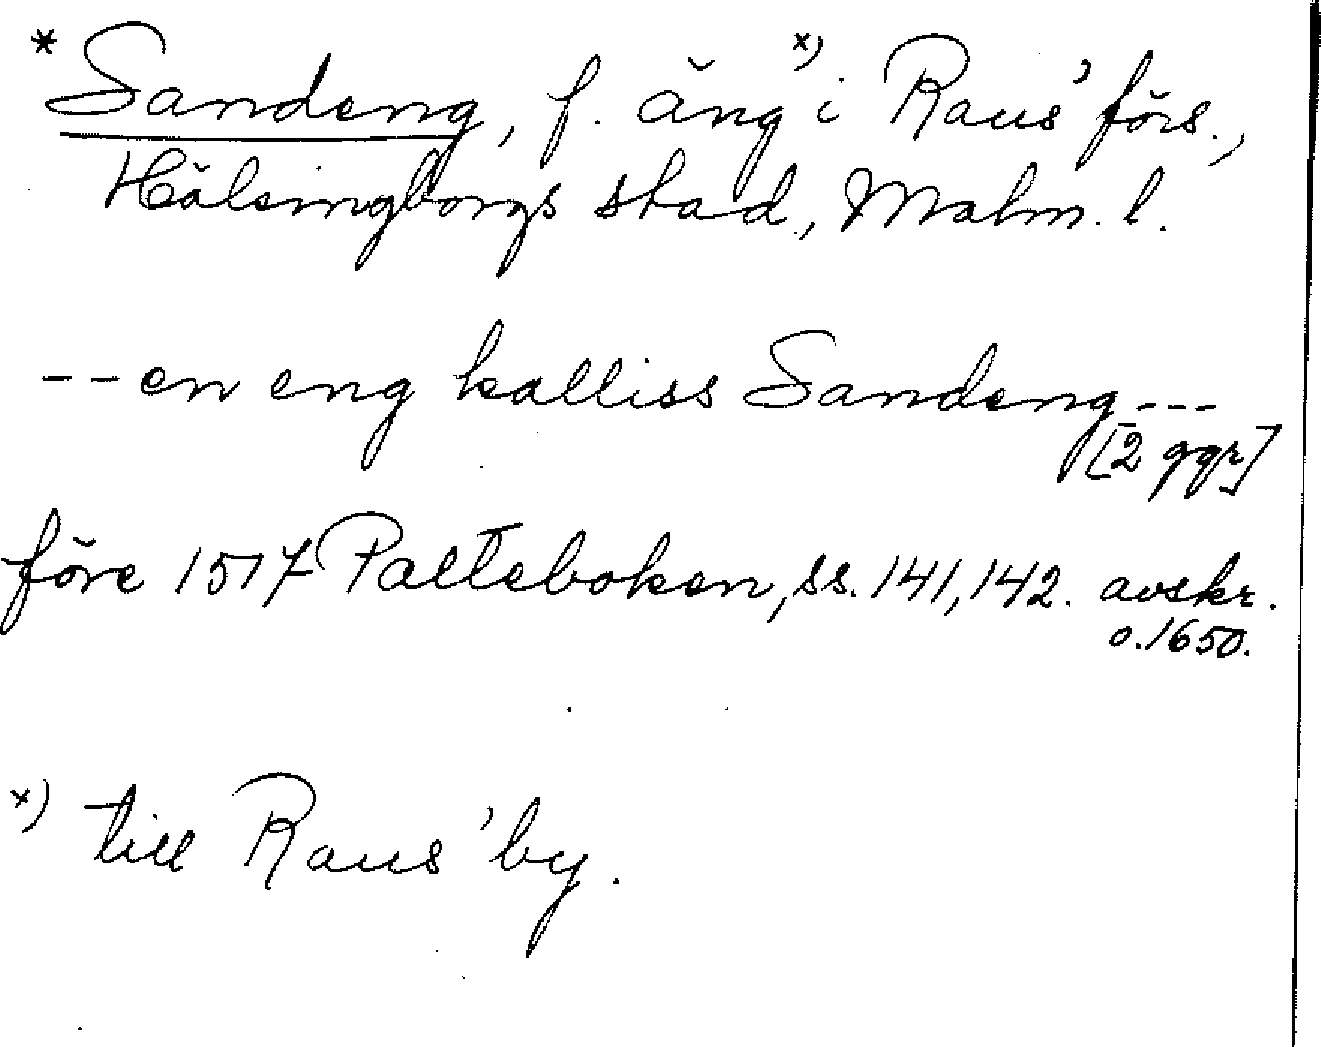 * Sandeng, f. äng x) i Raus' förs.,
Hälsingborgs stad, Malm. l.
-- en eng kalliss Sandeng ---
[2 ggr]
före 1517 Palteboken, ss. 141, 142. avskr.
o. 1650.
x) till Raus' by.